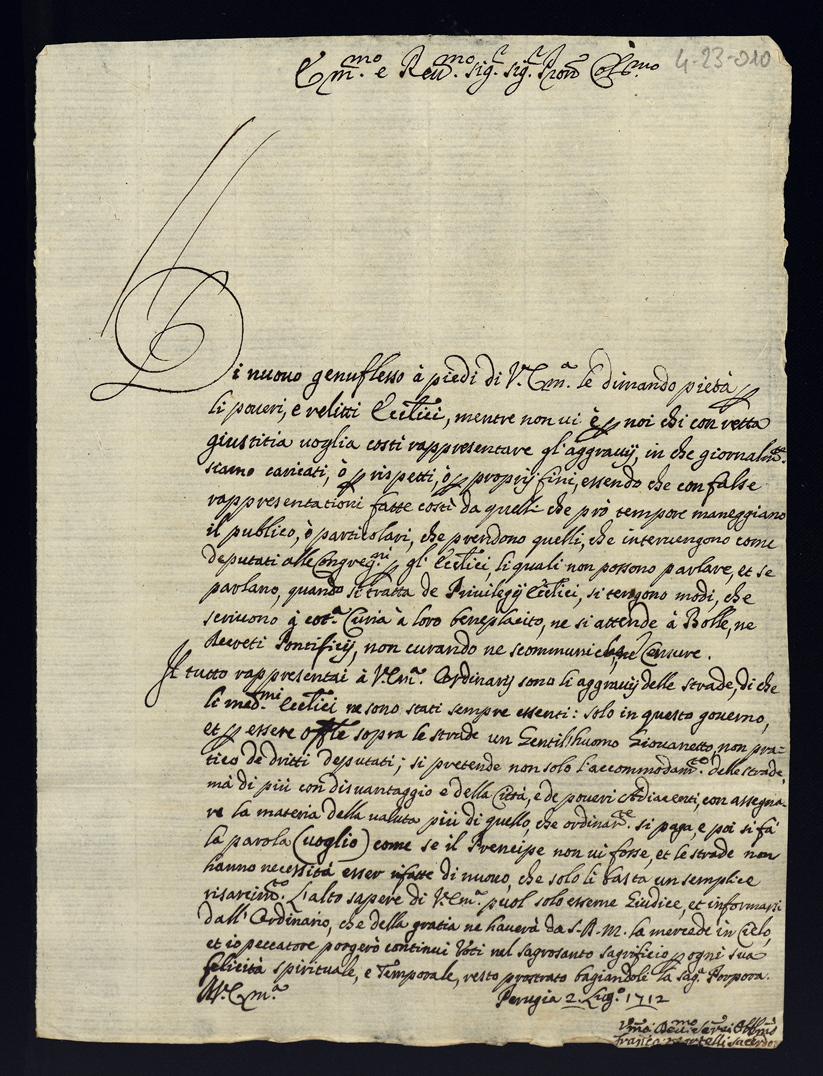 4-23-010
Em.mo e Reu.mo Sig.r Sig.r Pron Col.mo
Di nuouo genuflesso à piedi di V. Em.a le dimando pietà p
li poueri, e relitti Ecclici, mentre non ui è p noi chi con retta
giustitia uoglia costì rappresentare gl'aggrauij, in che giornalm.te
siamo caricati, ò p rispetti, ò p proprij fini, essendo che con false
rappresentationi fatte costì da quelli che prò tempore maneggiano
il publico, ò particolari, che prendono quelli, che interuengono come
deputati alle Congreg.ni p gl'Ecclici, li quali non possono parlare, et se
parlano, quando si tratta de Priuilegij Ecclici, si tengono modi, che
scriuono à cot.a Curia à loro beneplacito, ne si attende à Bolle, ne
decreti Pontificij, non curando ne scommuniche, ne Censure.
Il tutto rappresentai à V. Em.a Ordinarij sono li aggrauij delle strade, di che
li med.mi Ecclici ne sono stati sempre essenti: solo in questo gouerno,
et p essere sopra le strade un Gentilhuomo Giouanetto, non pra-
tico de dritti deputati; si pretende non solo l'accommodam.to delle strade,
mà di più con disuantaggio e della Città, e de poueri Adiacenti, con assegna-
re la materia della ualuta più di quello, che ordinar.te si paga, e poi si fà
la parola (uoglio) come se il Prencipe non ui fosse, et le strade non
hanno necessità esser rifatte di nuouo, che solo li basta un semplice
risarcim.to. L'alto sapere di V. Em.a puol solo esserne Giudice, et informarsi
dall'Ordinario, che della gratia ne hauerà da S.A.M. la mercede in Cielo,
et io peccatore porgerò continui Voti nel sagrosanto sagrificio p ogni sua
felicità spirituale, e Temporale, resto prostrato bagiandole la sag.a Porpora.
V. Em.a
Perugia 2 Lug.o 1712